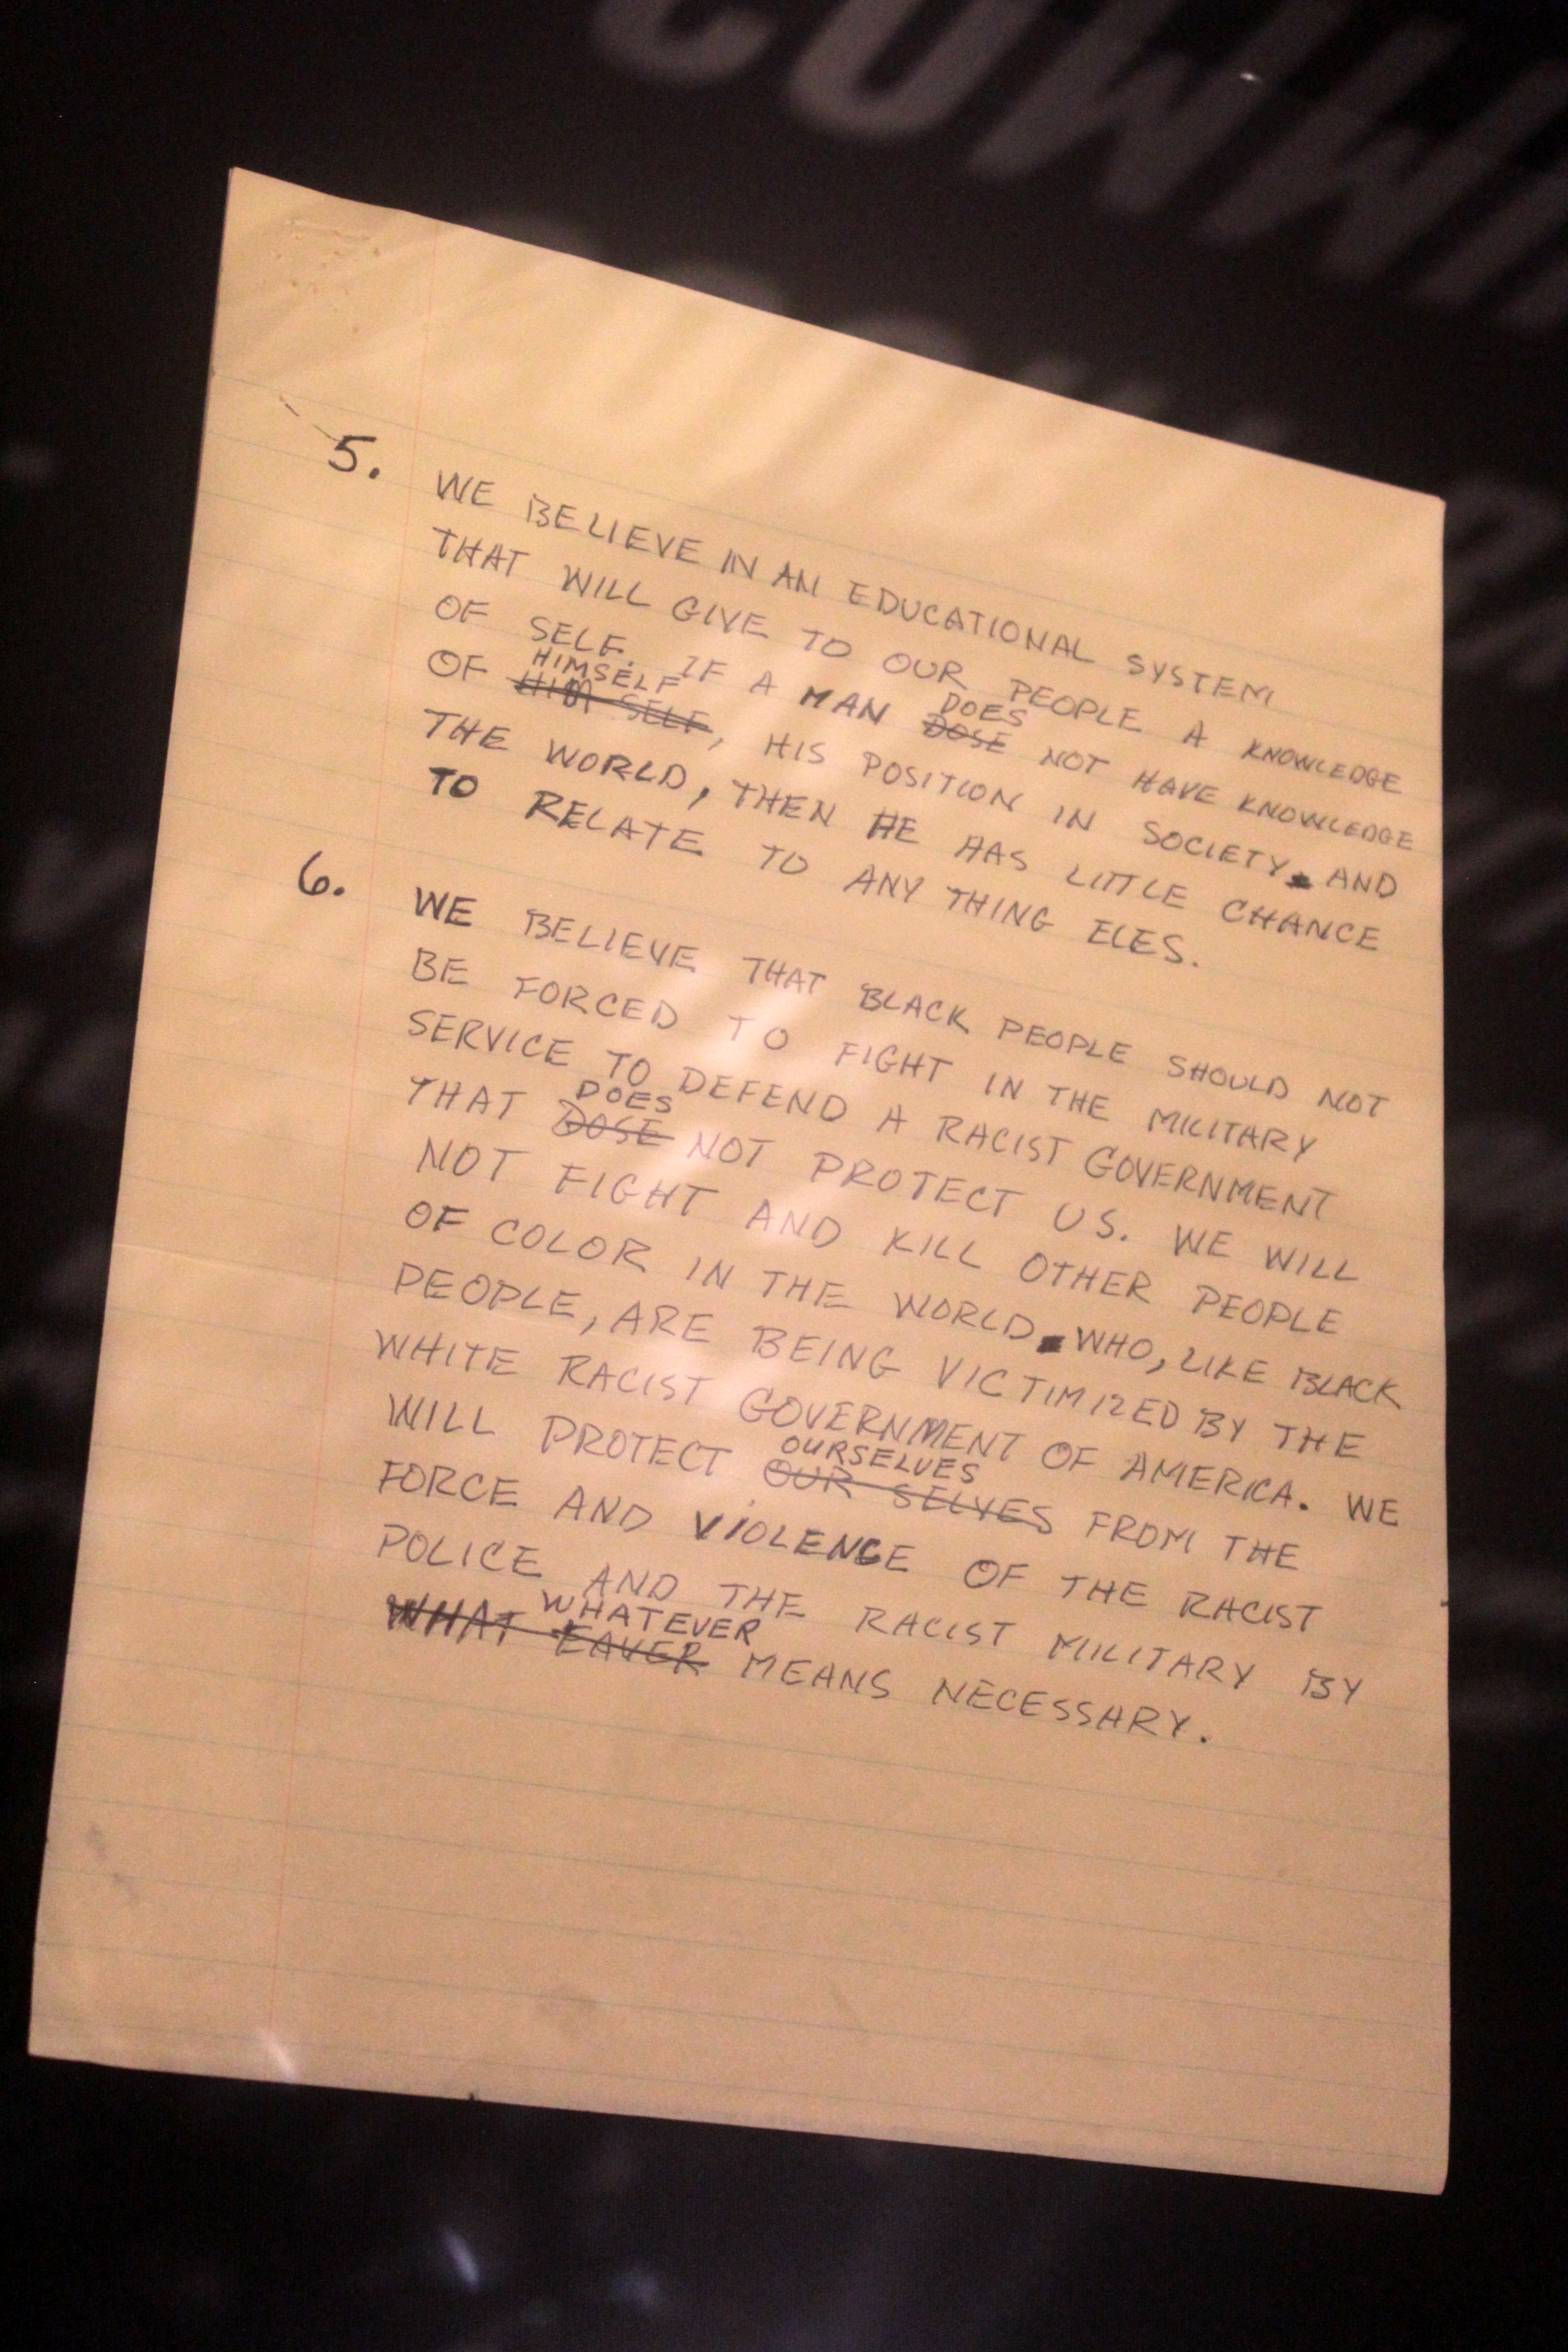 COWW
5. WE BELIEVE IN AN EDUCATIONAL SYSTEM
THAT WILL GIVE TO OUR PEOPLE A KNOWLEDGE
OF SELF. IF A MAN DOSE DOES NOT HAVE KNOWLEDGE
OF HIM SELF HIMSELF, HIS POSITION IN SOCIETY AND
THE WORLD, THEN HE HAS LITTLE CHANCE
TO RELATE TO ANY THING ELES.
6. WE BELIEVE THAT BLACK PEOPLE SHOULD NOT
BE FORCED TO FIGHT IN THE MILITARY
SERVICE TO DEFEND A RACIST GOVERNMENT
THAT DOSE DOES NOT PROTECT US. WE WILL
NOT FIGHT AND KILL OTHER PEOPLE
OF COLOR IN THE WORLD WHO, LIKE BLACK
PEOPLE, ARE BEING VICTIMIZED BY THE
WHITE RACIST GOVERNMENT OF AMERICA. WE
WILL PROTECT OUR SELVES OURSELVES FROM THE
FORCE AND VIOLENCE OF THE RACIST
POLICE AND THE RACIST MILITARY BY
WHAT EAVER WHATEVER MEANS NECESSARY.